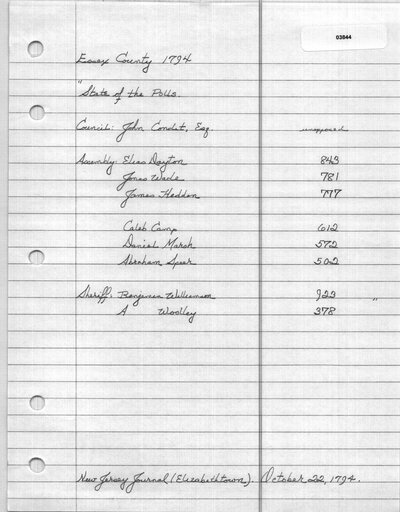 03844
Essex County 1794
"State of the Polls.
Council: John Condit, Esq. unopposed
Assembly: Elias Dayton 843
Jonas Wade 781
James Hedden 777
Caleb Camp 612
Daniel Marsh 572
Abraham Speer 502
Sheriff: Benjamin Williamson 923 "
A Woolley 378
New Jersey Journal (Elizabethtown). October 22, 1794.